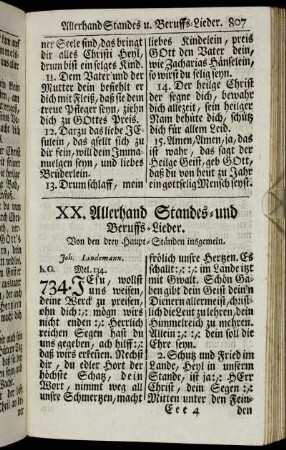 Allerhand Standes u. Beruffs-Lieder. 807
ner Seele sind, das bringt
dir alles Christi Heyl,
drum bist ein selges Kind.
11. Dem Vater und der
Mutter dein befiehlt er
dich mit Fleiß, daß sie dein
treue Pfleger seyn, ziehn
dich zu GOttes Preis.
12. Darzu das liebe JE-
sulein, das gsellt sich zu
dir fein, will dein Imma-
nuelgen seyn, und liebes
Brüderlein.
13. Drum schlaff, mein
liebes Kindelein, preis
GOtt den Vater dein,
wie Zacharias Hänselein,
so wirst du selig seyn.
14. Der heilge Christ
der segne dich, bewahr
dich allezeit, sein heiliger
Nam behüte dich, schütz
dich für allem Leid.
15. Amen, Amen, ja, das
ist wahr, das sagt der
Heilge Geist, geb GOtt,
daß du von heut zu Jahr
ein gottselig Mensch seyst.
XX. Allerhand Standes- und
Beruffs-Lieder.
Von den drey Haupt-Ständen insgemein.
Joh. Lindemann.
h. G. Mel. 134.
734. JEsu, wollst
uns weisen,
deine Werck zu preisen,
ohn dich :,: mögn wirs
nicht enden :,: Herrlich
reichen Segen hast du
uns gegeben, ach hilff :,:
daß wirs erkeñen. Nechst
dir, du edler Hort der
höchste Schatz, dein
Wort, nimmt weg all
unsre Schmertzen, macht
frölich unsre Hertzen. Es
schallt :,: :,: im Lande itzt
mit Gwalt. Schön Ga-
ben gibt dein Geist dein'n
Dienern allermeist, christ-
lich die Leut zu lehren, dein
Himmelreich zu mehren.
Allein :,: :,: dein soll die
Ehre seyn.
2. Schutz und Fried im
Lande, Heyl in unserm
Stande, ist ja :,: HErr
Christ, dein Segen :,:
Mitten unter den Fein-
Eee 4 den